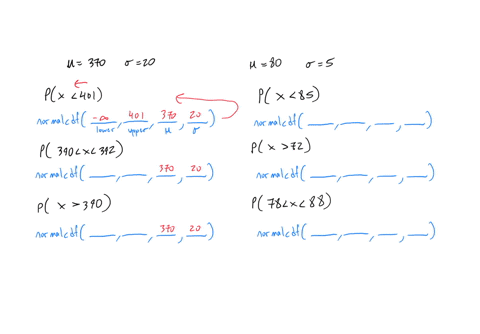 μ = 370 σ = 20
P( x < 401)
normalcdf( -∞, 401, 370, 20 )
lower upper μ σ
P( 340 < x < 392)
normalcdf( ___, ___, 370, 20 )
P( x > 390)
normalcdf( ___, ___, 370, 20 )
μ = 80 σ = 5
P( x < 85)
normalcdf( ___, ___, ___, ___)
P( x > 72)
normalcdf( ___, ___, ___, ___)
P( 78 < x < 88)
normalcdf( ___, ___, ___, ___)